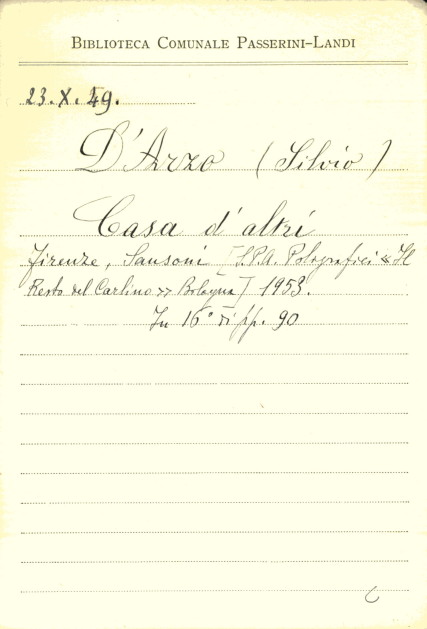 BIBLIOTECA COMUNALE PASSERINI-LANDI
23.X.49.
D'Arzo (Silvio)
Casa d'altri
Firenze, Sansoni [S.P.A. Poligrafici « Il
Resto del Carlino » Bologna] 1953.
In 16° di pp. 90